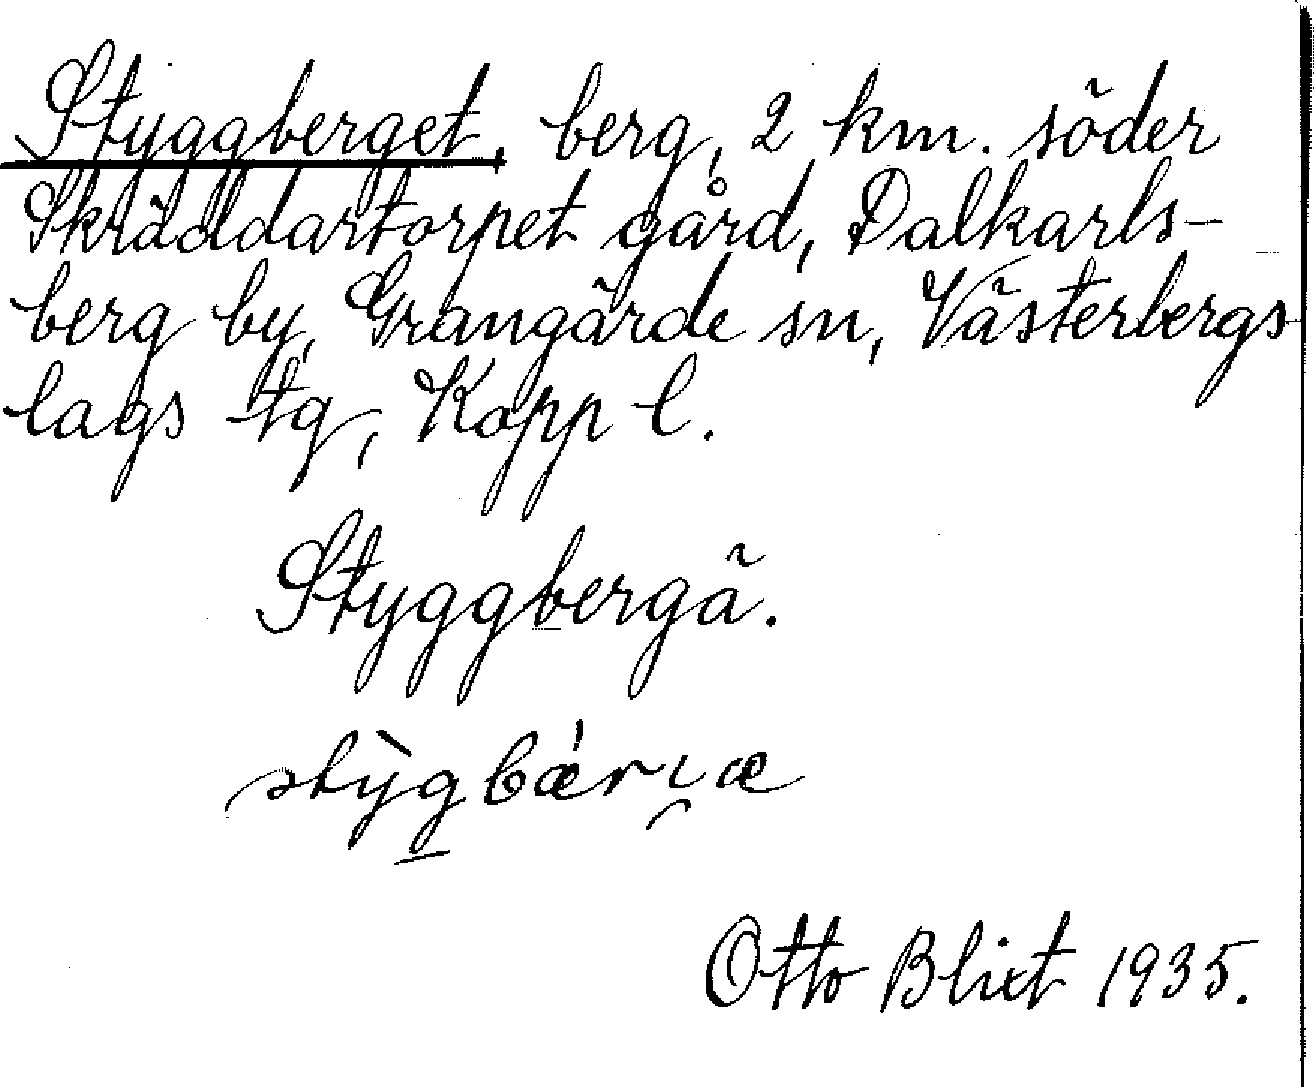 Styggberget, berg, 2 km. söder
Skräddartorpet gård, Dalkarls-
berg by, Grangärde sn, Västerbergs
lags tg, Kopp l.
Styggbergä.
Otto Blixt 1935.